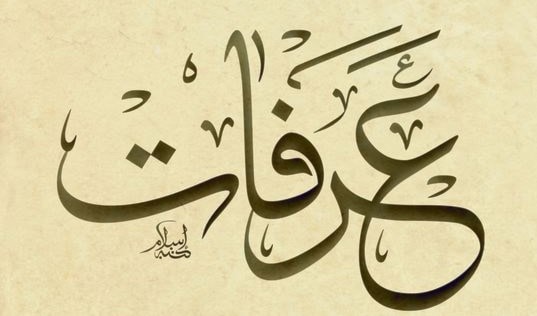 عَرَفَات
كتبه إسلام